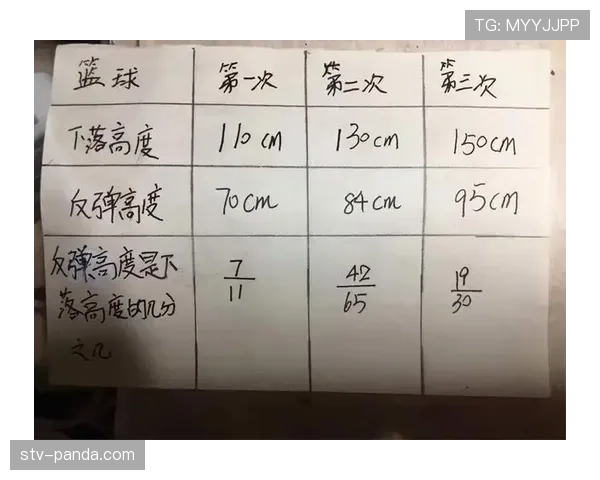 TG: MYYJJPP
篮球 第一次 第二次 第三次
下落高度 110cm 130cm 150cm
反弹高度 70cm 84cm 95cm
反弹高度是下
落高度的几分
之几
7/11 42/65 19/30
stv-panda.com